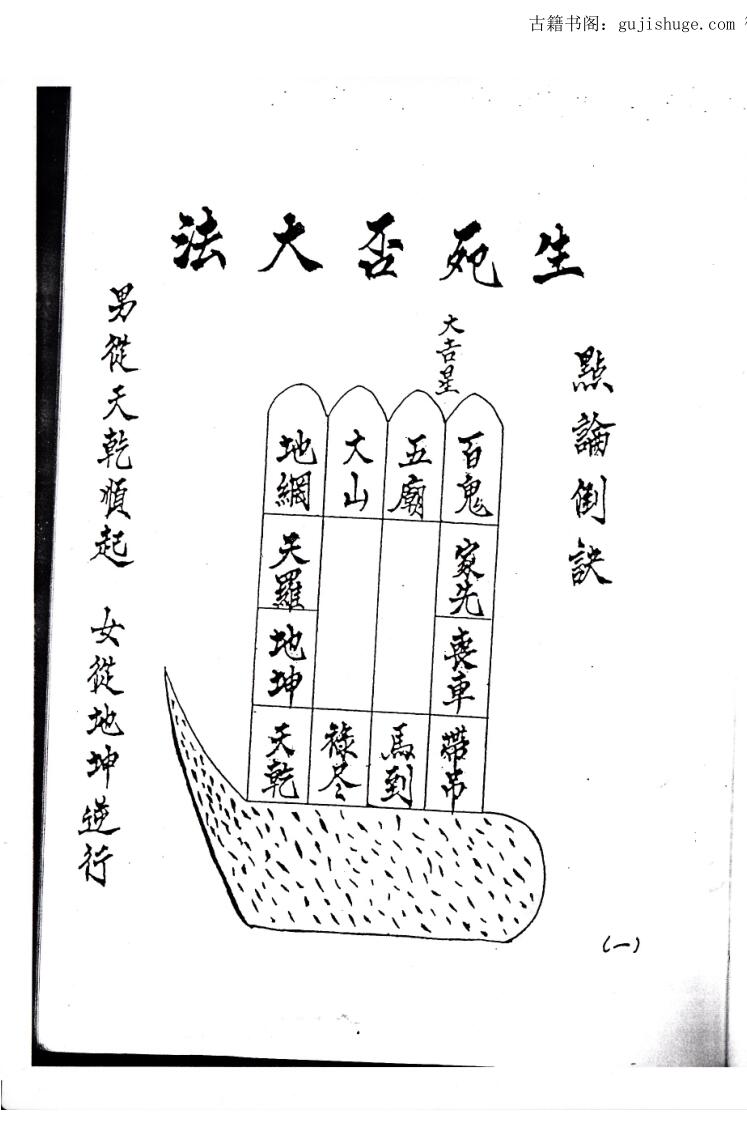 古籍书阁：gujishuge.com
生死否大法
點論倒訣
大吉星
百鬼
五廟
大山
地網
家先
天羅
喪車
地坤
帶吊
馬到
祿尽
天乾
男從天乾順起 女從地坤逆行
(一)